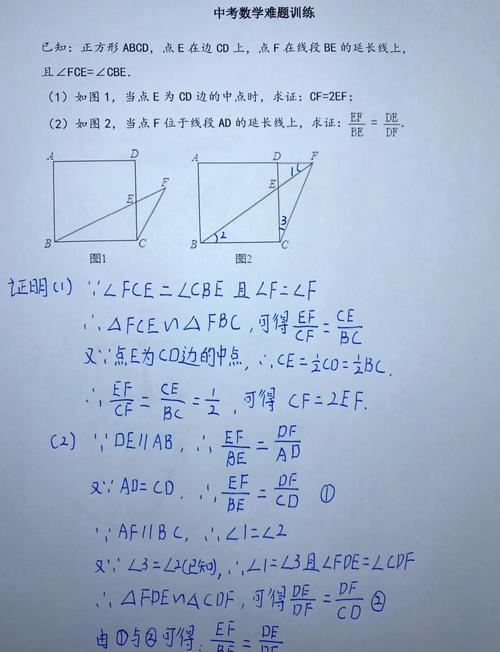 中考数学难题训练
已知：正方形 ABCD，点 E 在边 CD 上，点 F 在线段 BE 的延长线上，
且∠FCE=∠CBE.
（1）如图 1，当点 E 为 CD 边的中点时，求证：CF=2EF；
（2）如图 2，当点 F 位于线段 AD 的延长线上，求证：EF/BE = DE/DF.
A D F E B C
A D F 1 E 3 2 B C
图1 图2
证明(1) ∵∠FCE=∠CBE 且∠F=∠F
∴△FCE∽△FBC，可得 EF/CF = CE/BC
又∵点E为CD边的中点，∴CE=½CD=½BC.
∴ EF/CF = CE/BC = 1/2，可得 CF=2EF.
(2) ∵DE∥AB，∴ EF/BE = DF/AD
又∵AD=CD，∴ EF/BE = DF/CD ①
∵AF∥BC，∴∠1=∠2
又∵∠3=∠2(已知)，∴∠1=∠3且∠FDE=∠CDF
∴△FDE∽△CDF，可得 DE/DF = DF/CD ②
由①与②可得: EF/BE = DE/DF